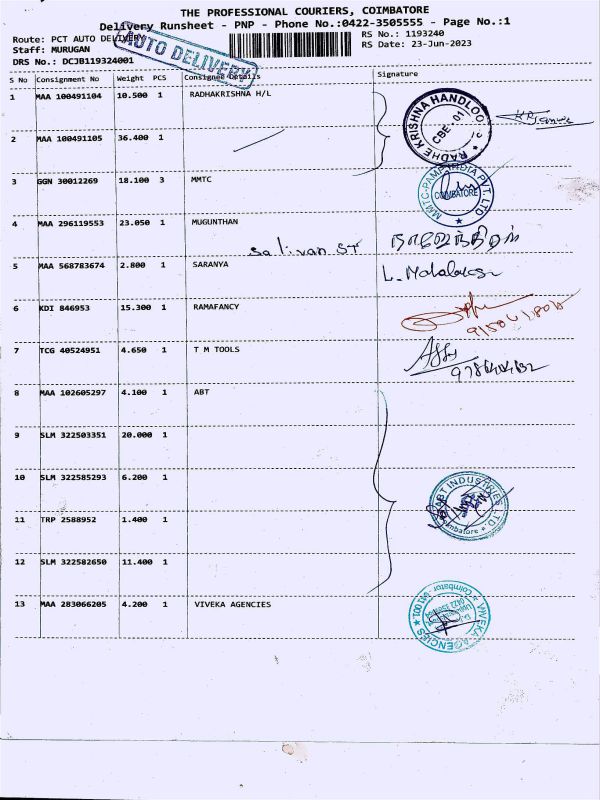 THE PROFESSIONAL COURIERS, COIMBATORE
Delivery Runsheet - PNP - Phone No.:0422-3505555 - Page No.:1
Route: PCT AUTO DELIVERY
RS No.: 1193240
Staff: MURUGAN
RS Date: 23-Jun-2023
DRS No.: DCJB119324001
AUTO DELIVERY
S No Consignment No Weight PCS Consignee Details Signature
1 MAA 100491104 10.500 1 RADHAKRISHNA H/L
RADHE KRISHNA HANDLOO
CBE - 01
2 MAA 100491105 36.400 1
3 GGN 30012269 18.100 3 MMTC
MMTC-PAMP INDIA PVT. LTD
COIMBATORE
4 MAA 296119553 23.050 1 MUGUNTHAN
Salivan ST
5 MAA 568783674 2.800 1 SARANYA
6 KDI 846953 15.300 1 RAMAFANCY
7 TCG 40524951 4.650 1 T M TOOLS
8 MAA 102605297 4.100 1 ABT
9 SLM 322503351 20.000 1
10 SLM 322585293 6.200 1
ABT INDUSTRIES LTD.
11 TRP 2588952 1.400 1
12 SLM 322582650 11.400 1
13 MAA 283066205 4.200 1 VIVEKA AGENCIES
VIVEKA AGENCIES
Coimbatore - 641 001